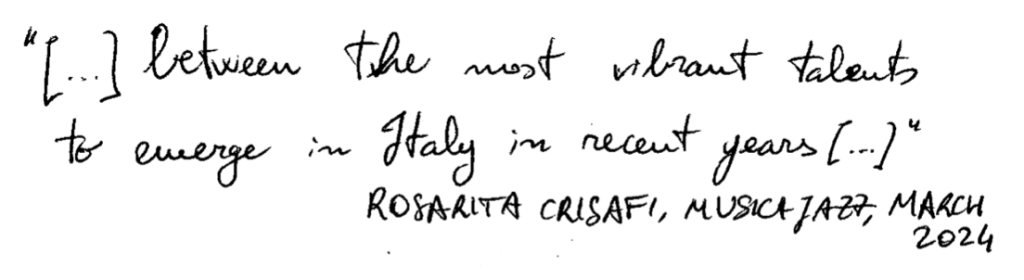 "[...] between the most vibrant talents
to emerge in Italy in recent years [...]"
ROSARITA CRISAFI, MUSICA JAZZ, MARCH
2024